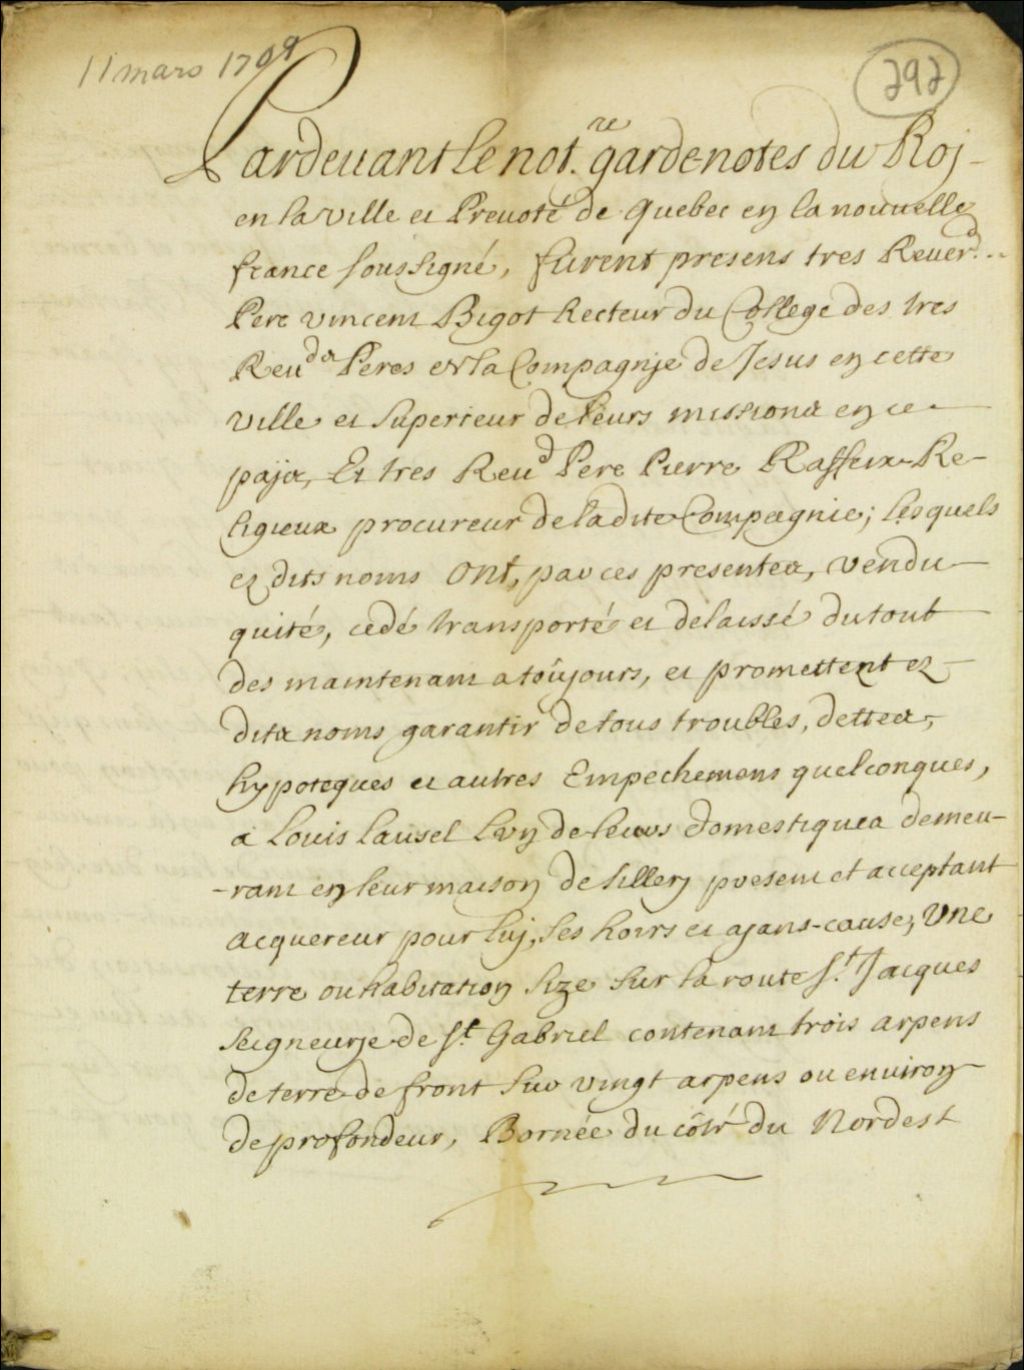 11 mars 1709
292
Pardevant le not.re gardenotes du Roj
en la ville et Prevoté de quebec en la nouvelle
france soussigné, furent presens tres Reuer.d
Pere vincent Bigot Recteur du College des tres
Reuds Peres de la Compagnje de Jesus en cette
ville et superieur de leurs missions en ce
pajs, Et tres Reud Pere Pierre Raffeix Re-
ligieux procureur de ladite Compagnie; lesquels
ez dits noms ont, par ces presentes, vendu
quité, cedé transporté et delaissé du tout
des maintenant a toûjours, et promettent ez
dits noms garantir de tous troubles, dettes,
hypoteques et autres Empechemens quelconques,
a Louis lausel l'vn de leurs domestiques demeu-
-rant en leur maison de sillery present et acceptant
acquereur pour luj, ses hoirs et ajans-cause, Vne
terre ou habitation size sur la route S.t Jacques
seigneurje de S.t Gabriel contenant trois arpens
de terre de front sur vingt arpens ou environ
de profondeur, Bornée du côté du Nordest